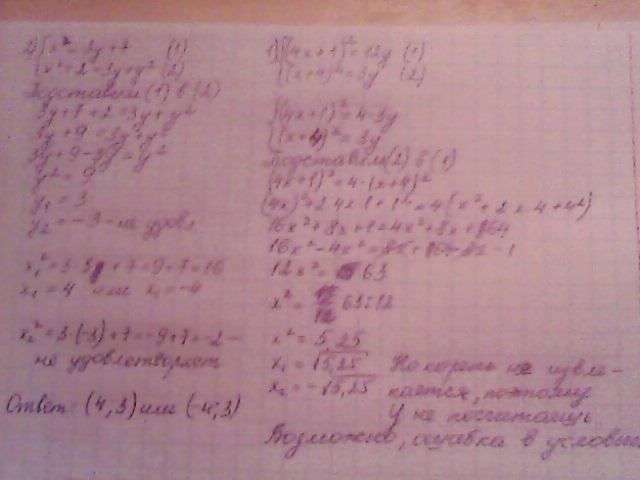 2) { x² = 3y + 7 (1)
{ x² + 2 = 3y + y² (2)
Подставим (1) в (2)
3y + 7 + 2 = 3y + y²
3y + 9 = 3y + y²
3y + 9 - 3y = y²
y² = 9
y₁ = 3
y₂ = -3 - не удовл
x₁² = 3·3 + 7 = 9 + 7 = 16
x₁ = 4 или x₁ = -4
x₂² = 3·(-3) + 7 = -9 + 7 = -2 -
не удовлетворяет
Ответ: (4,3) или (-4,3)
1) { (4x+1)² = 12y (1)
{ (x+4)² = 3y (2)
{ (4x+1)² = 4·3y
{ (x+4)² = 3y
Подставим (2) в (1)
(4x+1)² = 4·(x+4)²
(4x)² + 2·4x·1 + 1² = 4(x² + 2·x·4 + 4²)
16x² + 8x + 1 = 4x² + 8x + 64
16x² - 4x² = 8x + 64 - 8x - 1
12x² = 63
x² = 63:12
x² = 5,25
x₁ = √5,25
x₂ = -√5,25
Но корень не извле-
кается, поэтому
y не посчитаешь
Возможно, ошибка в условии